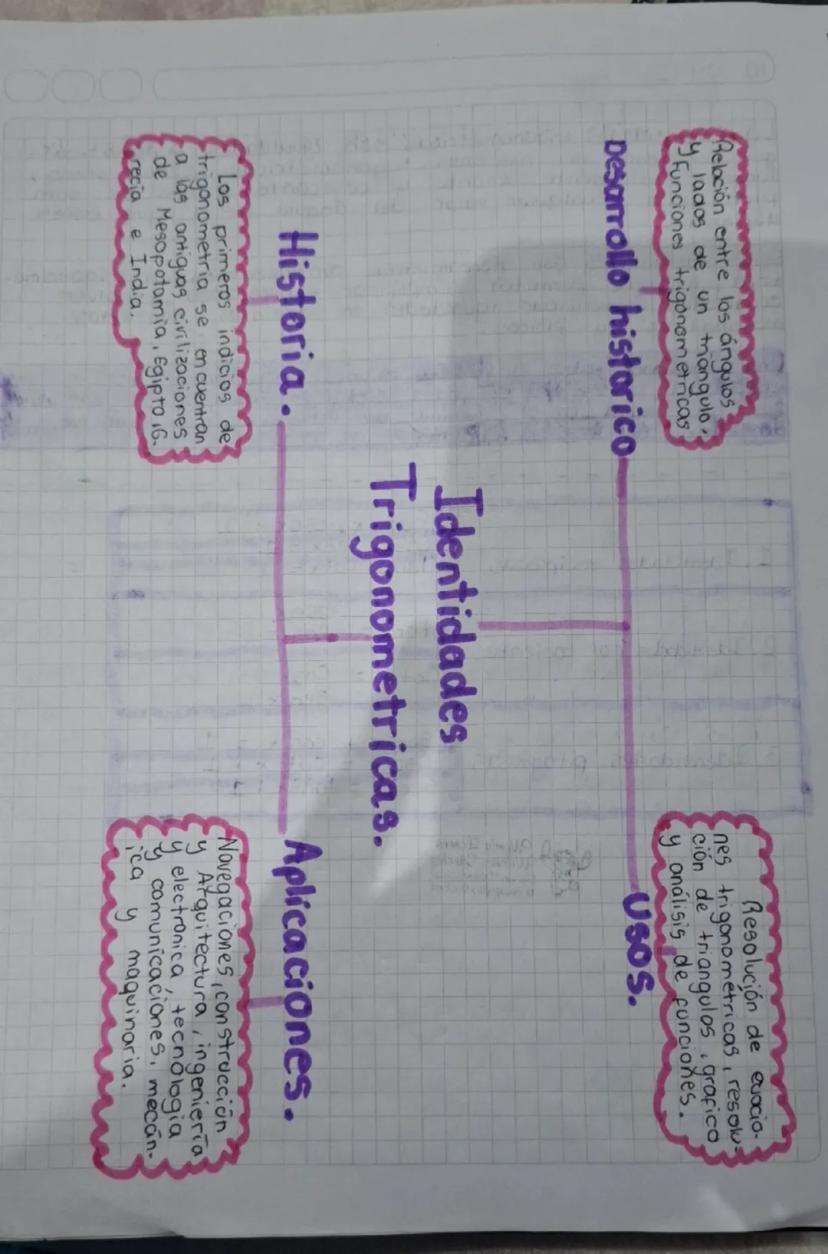 Relación entre los ángulos
y lados de un triangulo,
y funciones trigonometricas
Desarrollo historico
Resolución de euacio-
nes trigonométricas, resolu-
ción de triangulos, grafico
y análisis de funciones.
Usos.
Identidades
Trigonometricas.
Historia.
Los primeros indicios de
trigonometría se encuentran
a las antiguas civilizaciones
de Mesopotamia, Egipto, G.
recia e India.
Aplicaciones.
Navegaciones, construcción
y Arquitectura, ingeniería
y electronica, tecnología
y comunicaciones, mecan-
ica y maquinaria.